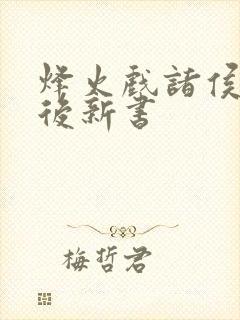 烽火戲諸侯
後新書
梅哲君